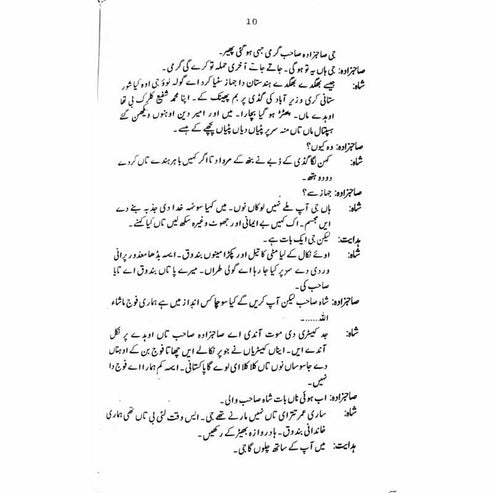 10
جی صاحبزادہ صاحب گرمی جہی ہو گئی پھیر۔
صاحبزادہ: جی ہاں یہ تو ہوگی۔ جاتے جاتے آخری حملہ تو کرے گی گرمی۔
شاہ: جیسے بھگدے بھگدے ہندستان دا جہاز سٹیا کر دا اے گولہ لوؤ جی اوہ کیا شور
ستانی کری وزیر آباد کی گڈی پر بم پھینک کے۔ اپنا محمد شفیع کلرک بی تھا
اوہدے ماں۔ پھٹڑ ہو گیا بچارا۔ میں اور امیر دین اوہنوں ویکھن گئے
ہسپتال ماں تاں منہ سر پٹیاں دیاں پٹیاں پچھے کے جیسے۔
صاحبزادہ: وہ کیوں؟
شاہ: کہن لگا گڈی کے ڈبے نے بتھ کے مردا دتا اگر کہیں باہر ہندے تاں کر دے
دو دو ہتھ۔
صاحبزادہ: جہاز سے؟
شاہ: ہاں جی آپ ملے نہیں لوکاں نوں۔ میں کہیا سونہہ خدا دی جذبہ بنے دے
ایں مجسم۔ اک کہیں بے ایمانی اور جھوٹ وغیرہ سکھ لیں تاں کیا کہنے۔
ہدایت: لیکن جی ایک بات ہے۔
شاہ: اوئے نکال کے لیا مٹی کا تیل اور پکڑا مینوں بندوق۔ ایسہ بڈھا معذور پرانی
وردی دے سر پر کیا جا رہا اے گولی طراں۔ میرے پا تاں بندوق اے تایا
صاحب کی۔
صاحبزادہ: شاہ صاحب لیکن آپ کریں گے کیا سوچا کس انداز میں ہے ہماری فوج ماشاء
اللہ......۔
شاہ: جد کمیٹری دی موت آندی اے صاحبزادہ صاحب تاں اوہدے پر نکل
آندے ایں۔ ایناں کمیٹریاں نے جو پر نکالے ایں چھاتا فوج بن کے اوہناں
دے جاسوساں نوں تاں کلا کلا ای لوے گا پاکستانی۔ ایسہ کم ہمارا اے فوج دا
نہیں۔
صاحبزادہ: اب ہوئی ناں بات شاہ صاحب والی۔
شاہ: ساری عمر تتراای تاں نہیں مارنے تھے جی۔ ایس وقت لئی بی تاں تھی ہماری
خاندانی بندوق۔ ہادر وازہ بھیڑ کے رکھیں۔
ہدایت: میں آپ کے ساتھ چلوں گا جی۔